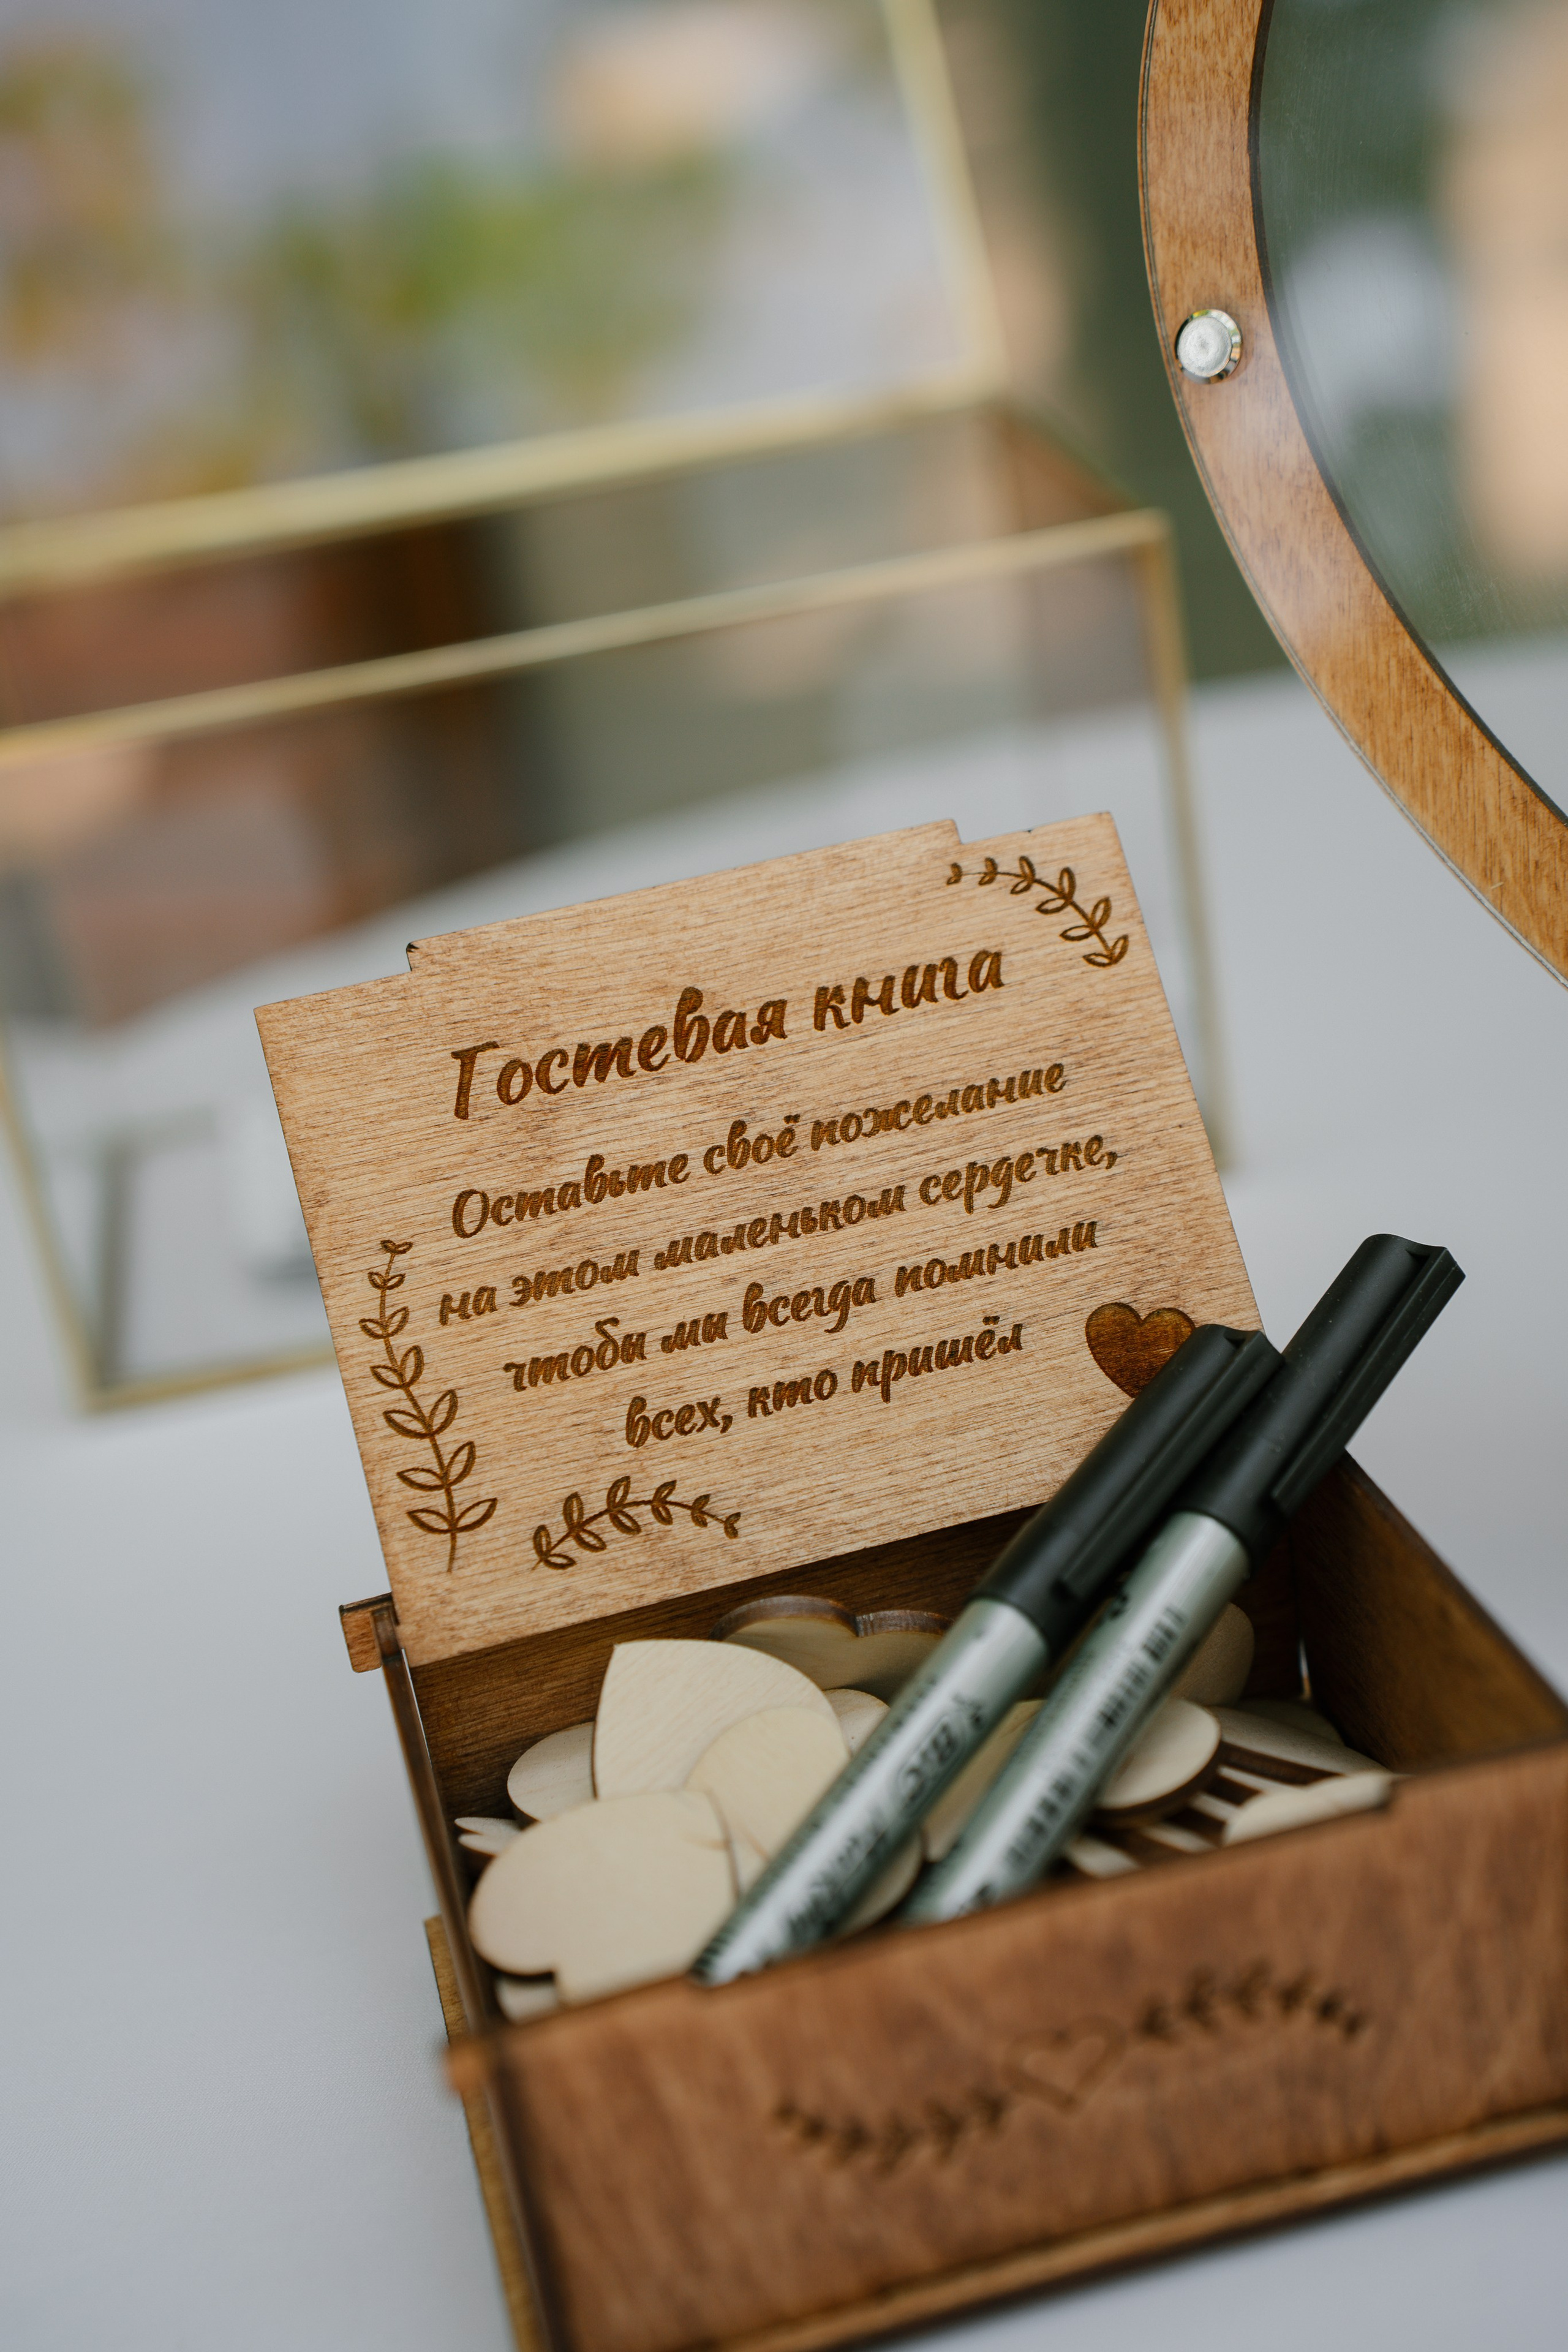 Гостевая книга
Оставьте своё пожелание
на этом маленьком сердечке,
чтобы мы всегда помнили
всех, кто пришёл
BIC Marking